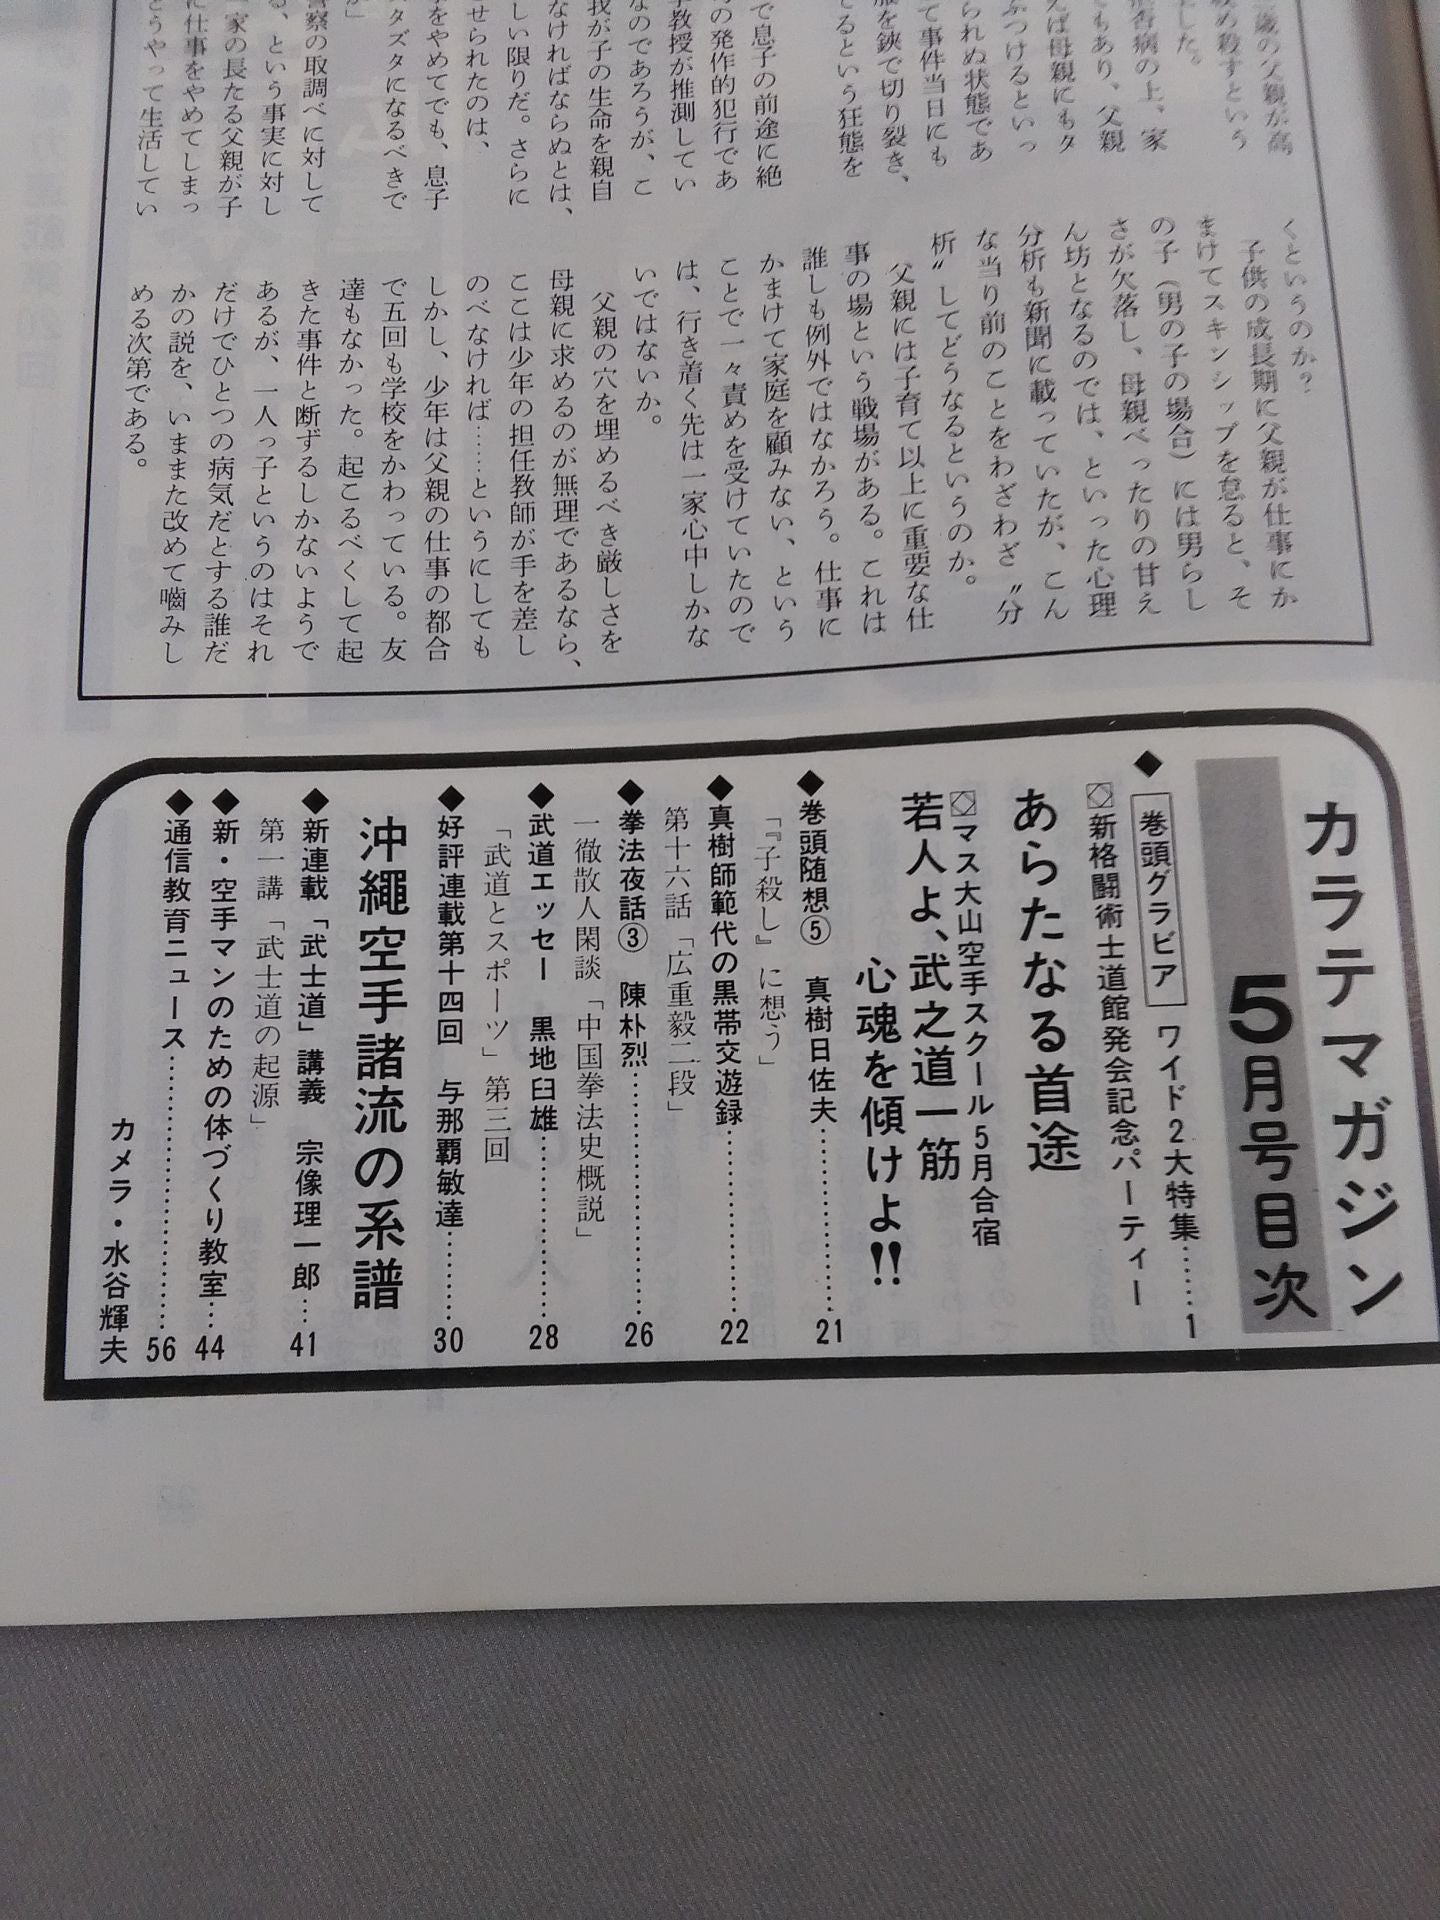 歳の父親が高
め殺すという
した。
病の上、家
でもあり、父親
えば母親にもタ
ぶつけるといっ
られぬ状態であ
て事件当日にも
服を鋏で切り裂き、
てるという狂態を
で息子の前途に絶
の発作的犯行であ
教授が推測してい
なのであろうが、こ
我が子の生命を親自
なければならぬとは、
しい限りだ。さらに
せられたのは、
をやめてでも、息子
タズタになるべきで
警察の取調べに対して
る、という事実に対し
一家の長たる父親が子
に仕事をやめてしまっ
どうやって生活してい
くというのか？
子供の成長期に父親が仕事にか
まけてスキンシップを怠ると、そ
の子（男の子の場合）には男らし
さが欠落し、母親べったりの甘え
ん坊となるのでは、といった心理
分析も新聞に載っていたが、こん
な当り前のことをわざわざ〝分
析〟してどうなるというのか。
父親には子育て以上に重要な仕
事の場という戦場がある。これは
誰しも例外ではなかろう。仕事に
かまけて家庭を顧みない、という
ことで一々責めを受けていたので
は、行き着く先は一家心中しかな
いではないか。
父親の穴を埋めるべき厳しさを
母親に求めるのが無理であるなら、
ここは少年の担任教師が手を差し
のべなければ……というにしても
しかし、少年は父親の仕事の都合
で五回も学校をかわっている。友
達もなかった。起こるべくして起
きた事件と断ずるしかないようで
あるが、一人っ子というのはそれ
だけでひとつの病気だとする誰だ
かの説を、いままた改めて嚙みし
める次第である。
カラテマガジン
5月号目次
◆巻頭グラビア ワイド2大特集……1
◇新格闘術士道館発会記念パーティー
あらたなる首途
◇マス大山空手スクール5月合宿
若人よ、武之道一筋
心魂を傾けよ!!
◆巻頭随想⑤ 真樹日佐夫……21
「『子殺し』に想う」
◆真樹師範代の黒帯交遊録……22
第十六話「広重毅二段」
◆拳法夜話③ 陳朴烈……26
一徹散人閑談「中国拳法史概説」
◆武道エッセー 黒地臼雄……28
「武道とスポーツ」第三回
◆好評連載第十四回 与那覇敏達……30
沖縄空手諸流の系譜
◆新連載「武士道」講義 宗像理一郎…41
第一講「武士道の起源」
◆新・空手マンのための体づくり教室…44
◆通信教育ニュース……56
カメラ・水谷輝夫